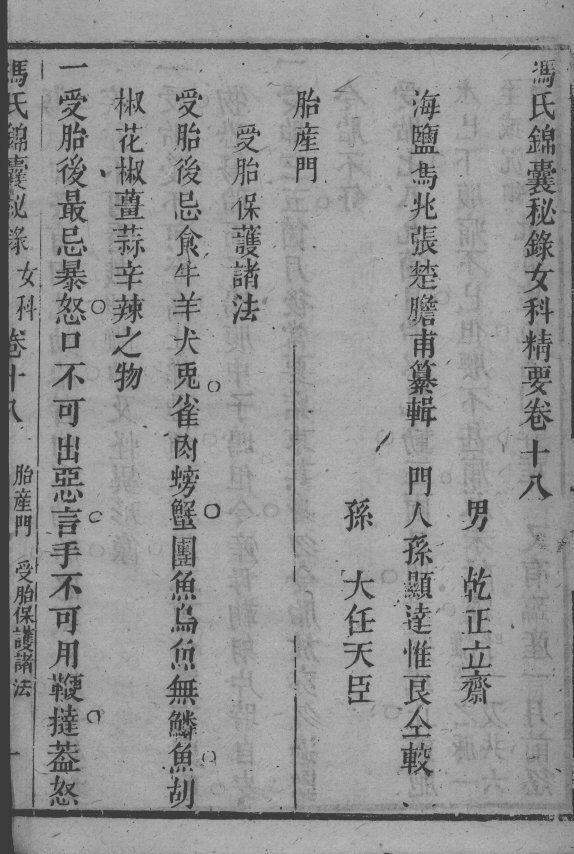 馮氏錦囊秘錄女科精要卷十八
男 乾正立齋
海鹽馮兆張楚瞻甫纂輯 門人孫顯達惟良仝較
孫 大任天臣
胎產門
受胎保護諸法
受胎後忌食牛羊犬兎雀肉螃蟹團魚烏魚無鱗魚胡
椒花椒薑蒜辛辣之物
一受胎後最忌暴怒口不可出惡言手不可用鞭撻蓋怒
馮氏錦囊秘錄 女科 卷十八 胎產門 受胎保護諸法 一